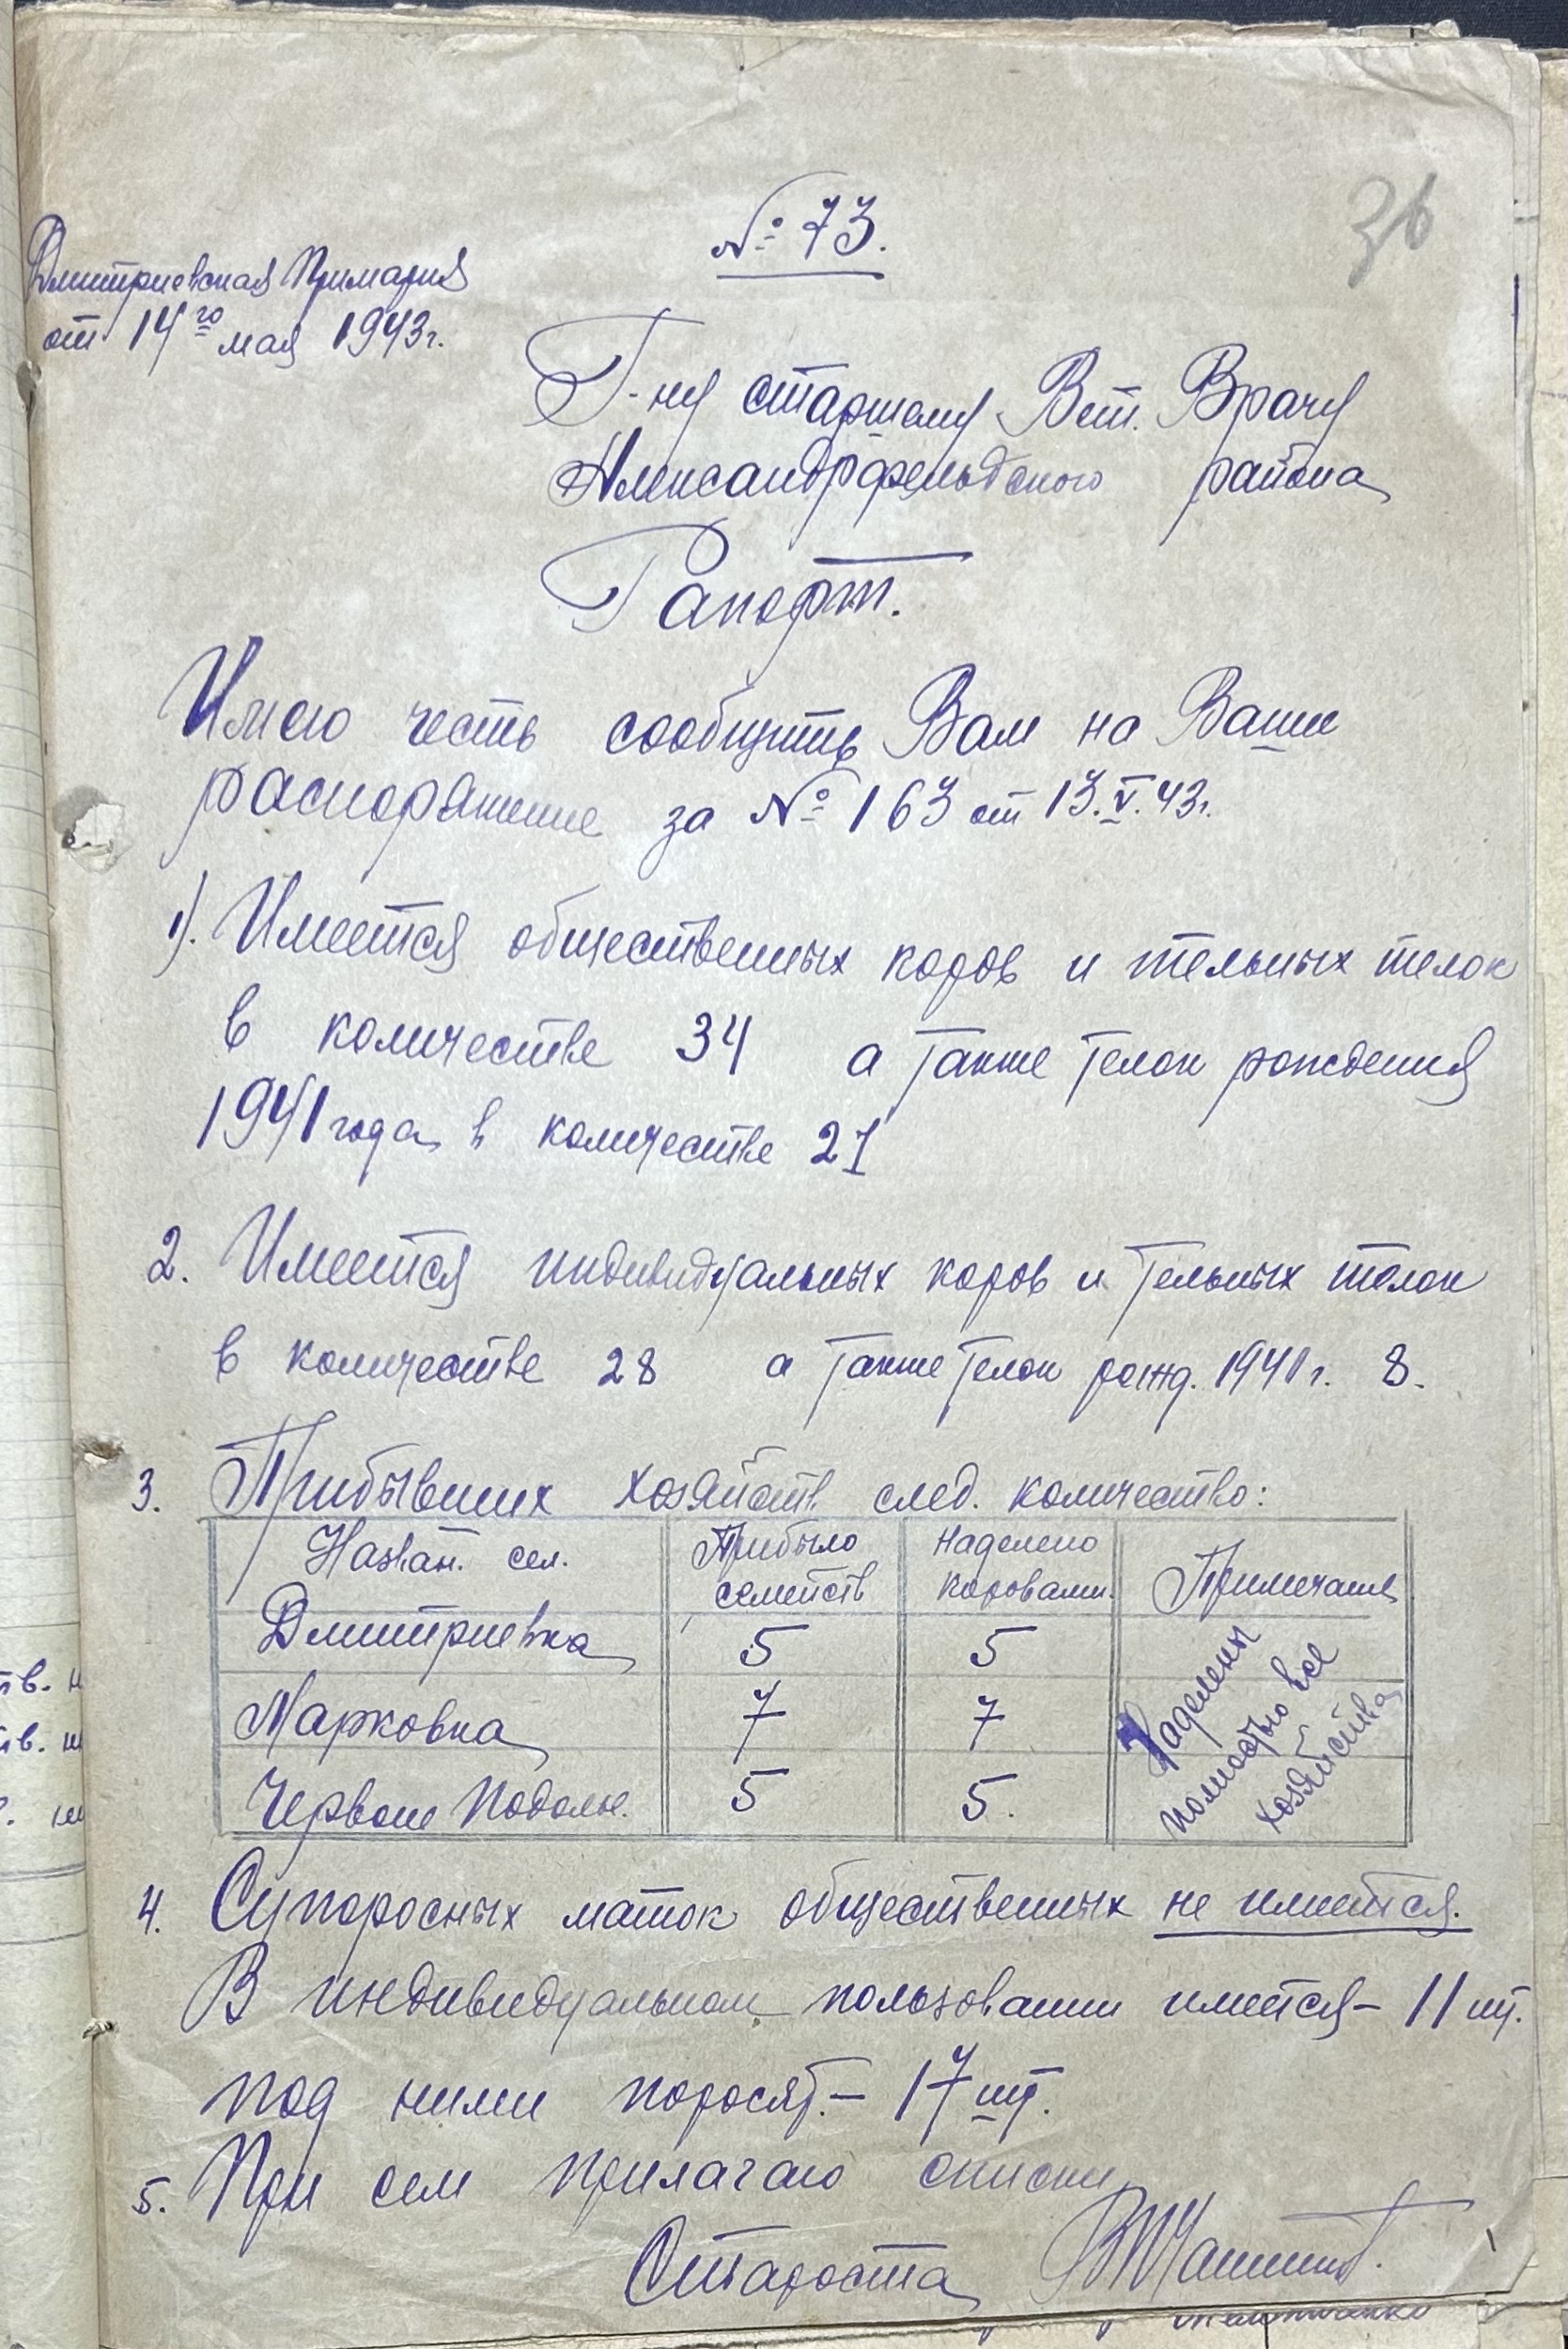 36
№ 73.
Дмитриевская Примария
от 14го мая 1943г.
Г-ну старшему Вет. Врачу
Александрфельдского района
Рапорт.
Имею честь сообщить Вам на Ваше
распоряжение за № 163 от 13.V.43г.
1). Имеется общественных коров и тельных телок
в количестве 34 а также телок рождения
1941 года в количестве 21
2. Имеется индивидуальных коров и тельных телок
в количестве 28 а также телок рожд. 1941 г. 8.
3. Прибывших хозяйств след. количество:
Назван. сел. Прибыло семейств Наделено коровами Примечание
Дмитриевка 5 5
Марковка 7 7
Червоне Подолье. 5 5.
Наделены
полностью все
хозяйства
4. Супоросных маток общественных не имеется.
В индивидуальном пользовании имеется – 11 шт.
под ними поросят. – 17 шт.
5. При сем прилагаю списки
Староста